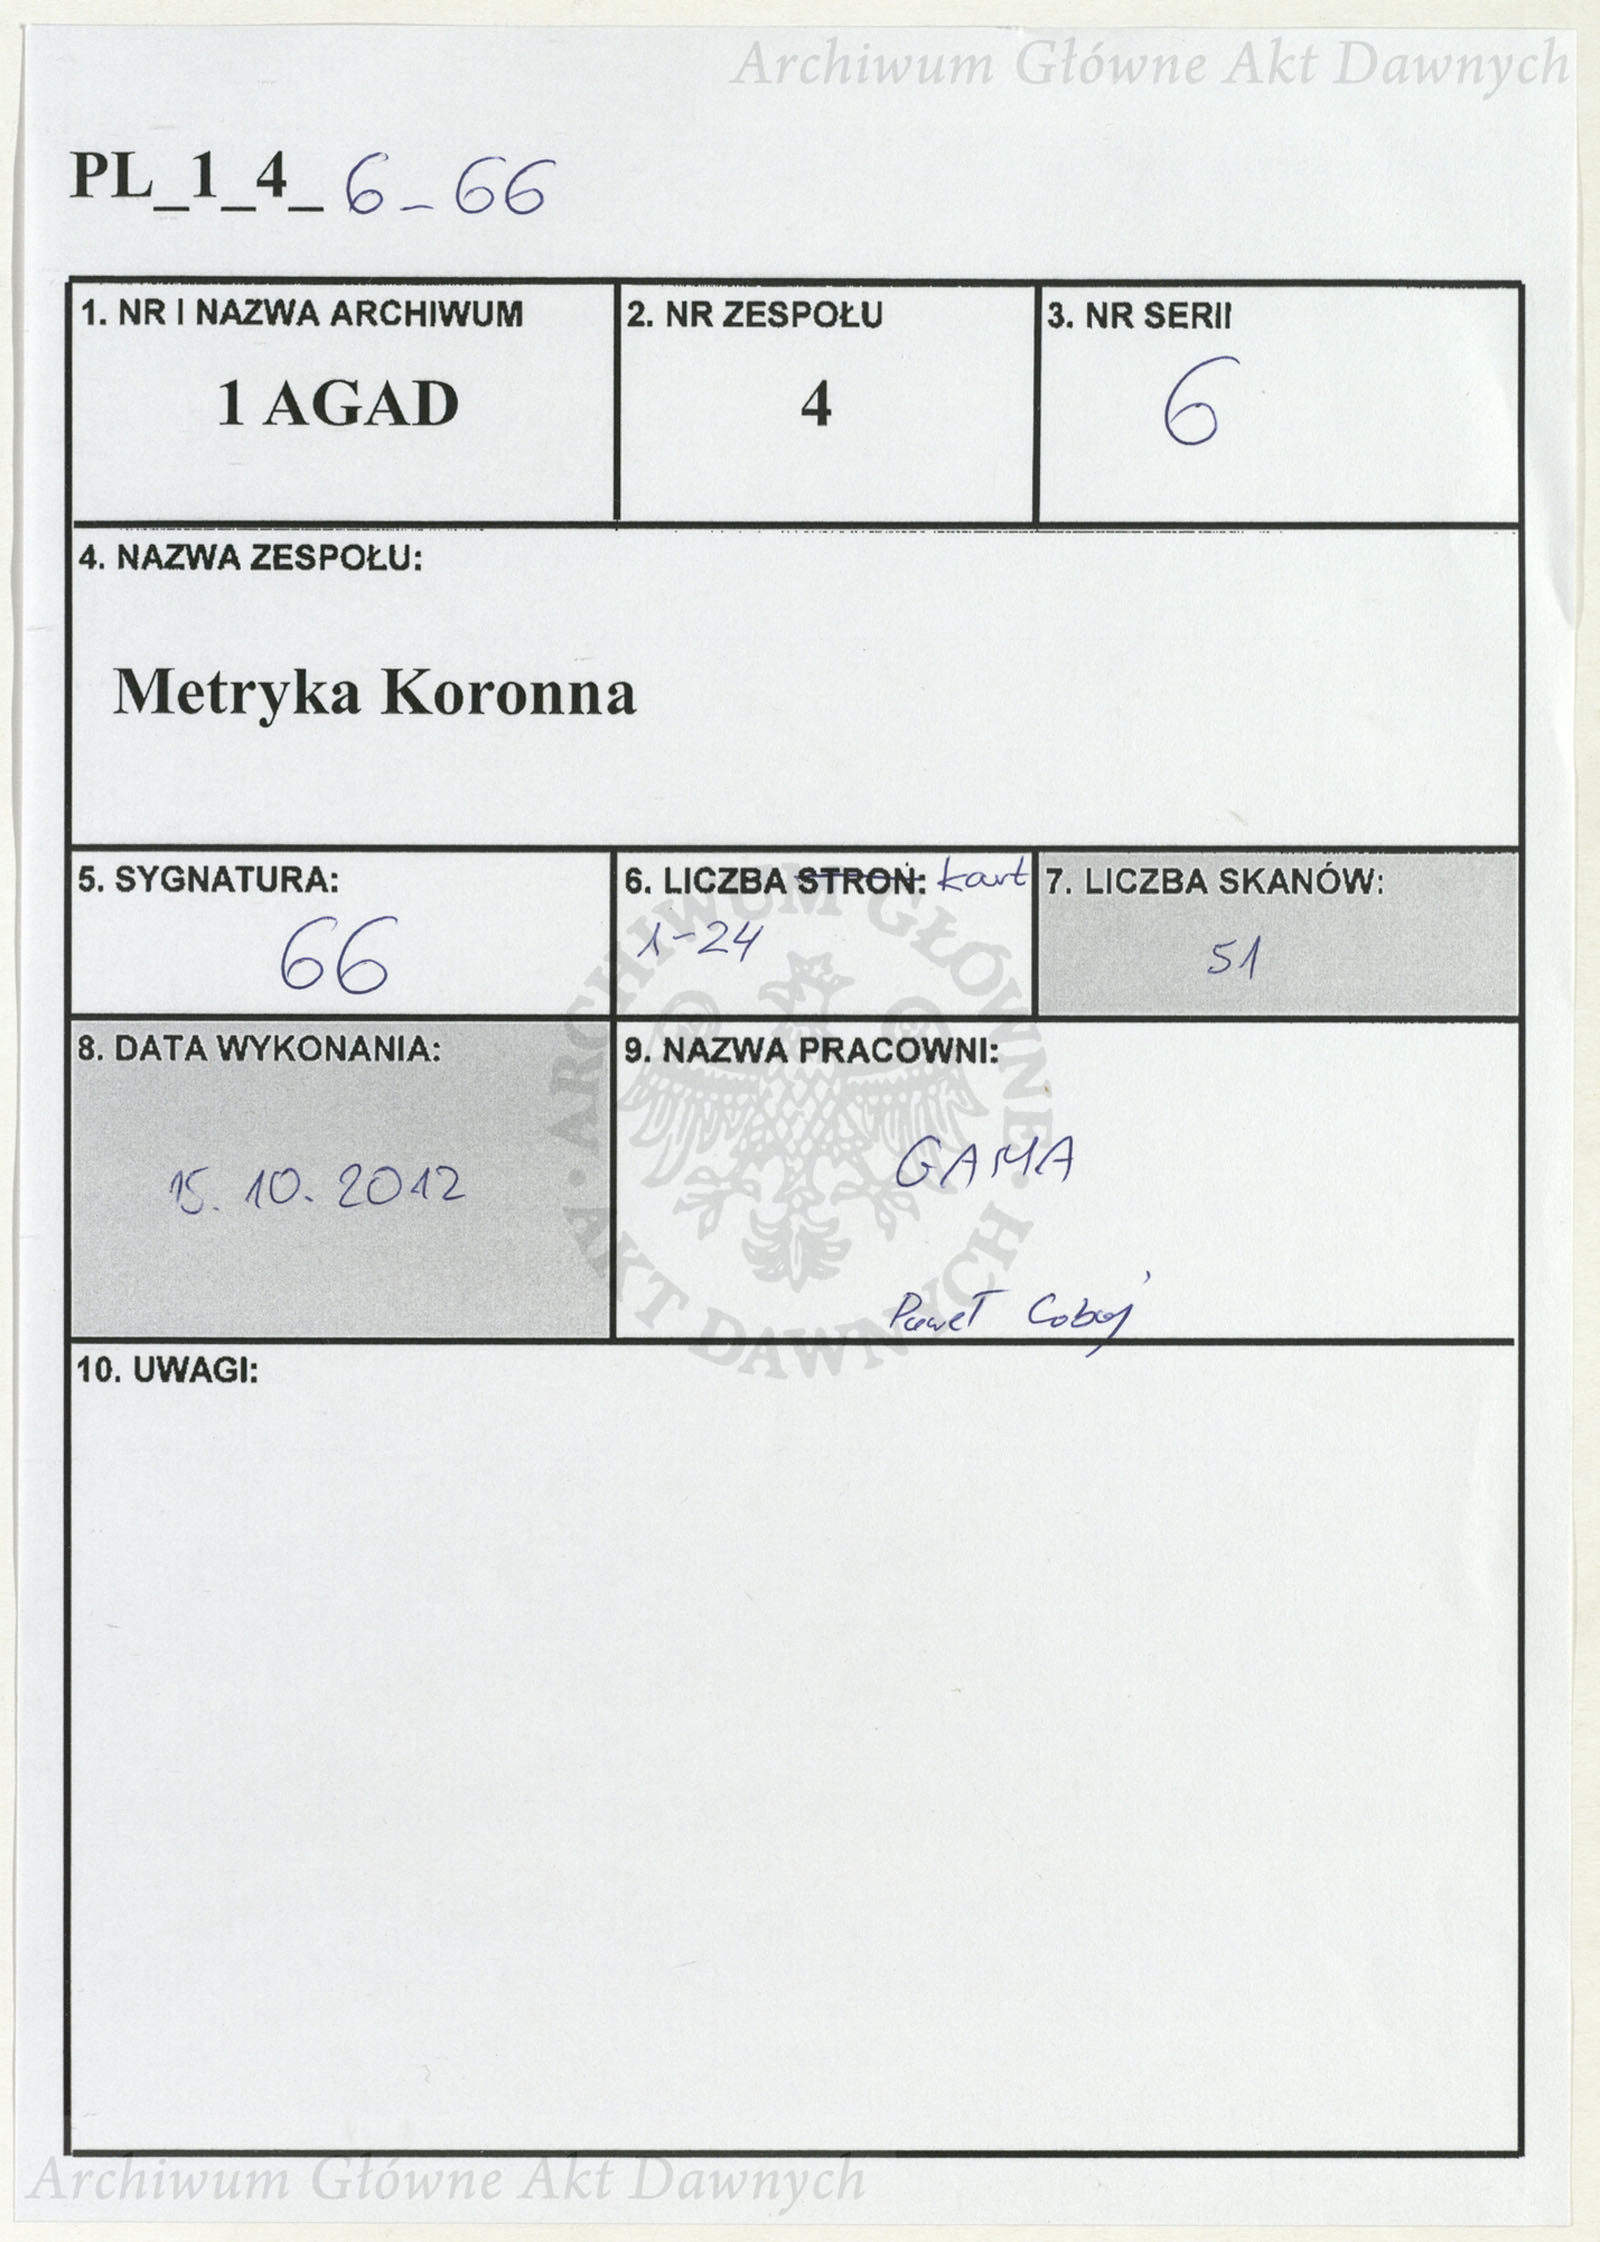 Archiwum Główne Akt Dawnych
PL_1_4_6_66
1. NR I NAZWA ARCHIWUM
1 AGAD
2. NR ZESPOŁU
4
3. NR SERII
6
4. NAZWA ZESPOŁU:
Metryka Koronna
5. SYGNATURA:
66
6. LICZBA STRON: kart
1-24
7. LICZBA SKANÓW:
51
8. DATA WYKONANIA:
15.10.2012
9. NAZWA PRACOWNI:
GAMA
Paweł
10. UWAGI:
ARCHIWUM GŁÓWNE AKT DAWNYCH
Archiwum Główne Akt Dawnych